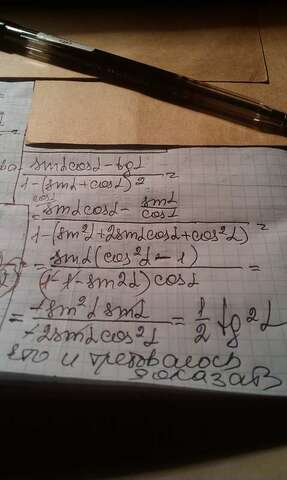 sinα cosα - tgα
1-(sinα + cosα)² =
= cosα sinα cosα - sinα/cosα
1-(sin²α + 2sinα cosα + cos²α) =
= sinα(cos²α - 1)
(1-1-sin2α) cosα =
= -sin²α sinα / -2sinα cos²α = 1/2 tg²α
что и требовалось
доказать